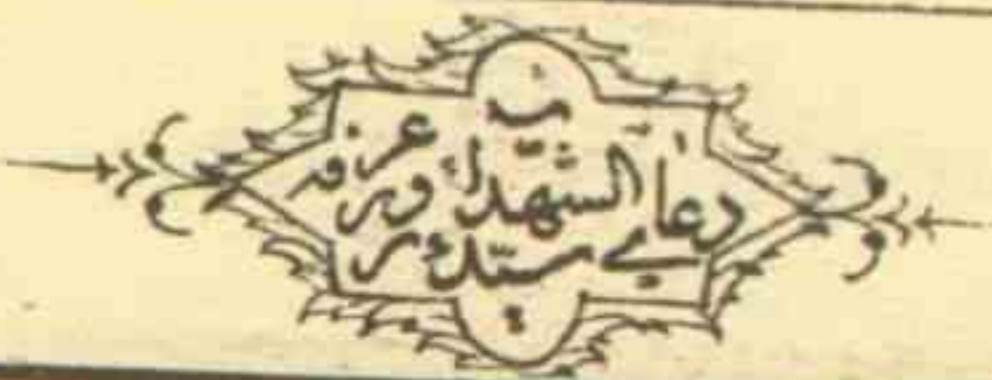 دعای سیّد الشهداء در روز عرفه